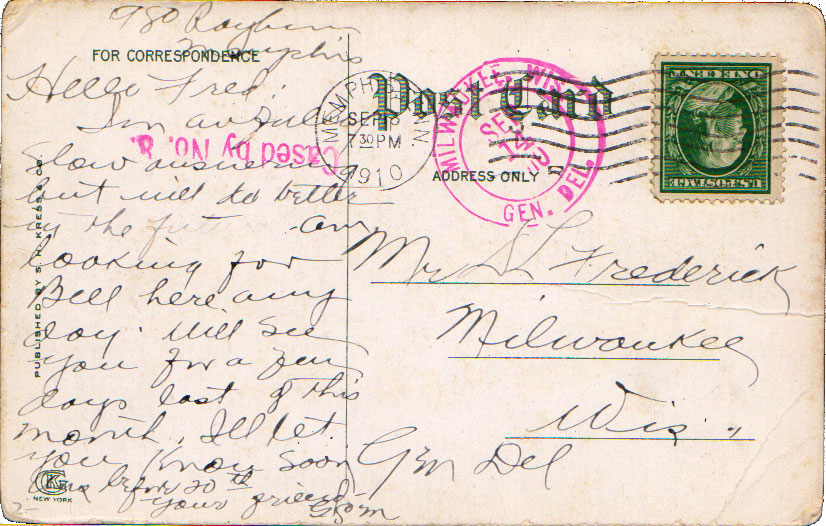 980 Rayburn
Memphis
FOR CORRESPONDENCE
Hello Fred:
Im awfully
slow answering
but will do better
in the future. am
looking for
Bell here any
day. Will see
you for a few
days last of this
month, Ill let
you know soon
before 20th
your friend
Cased by No. 8.
PUBLISHED BY S. H. KRESS & CO.
KG
NEW YORK
Post Card
ADDRESS ONLY
MEMPHIS
SEP 8
730PM
1910
MILWAUKEE, WIS.
SEP
GEN. DEL.
U.S. POSTAGE
Mr S L Frederick
Milwaukee
Wis.,
Gen Del